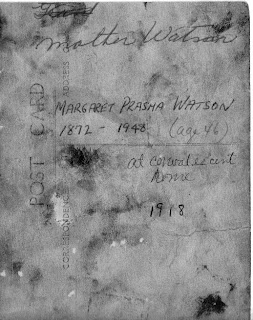 Mother Watson
MARGARET PRASHA WATSON
1872 - 1948 (age 46)
at convalescent
home
1918
POST CARD
CORRESPONDENCE
ADDRESS